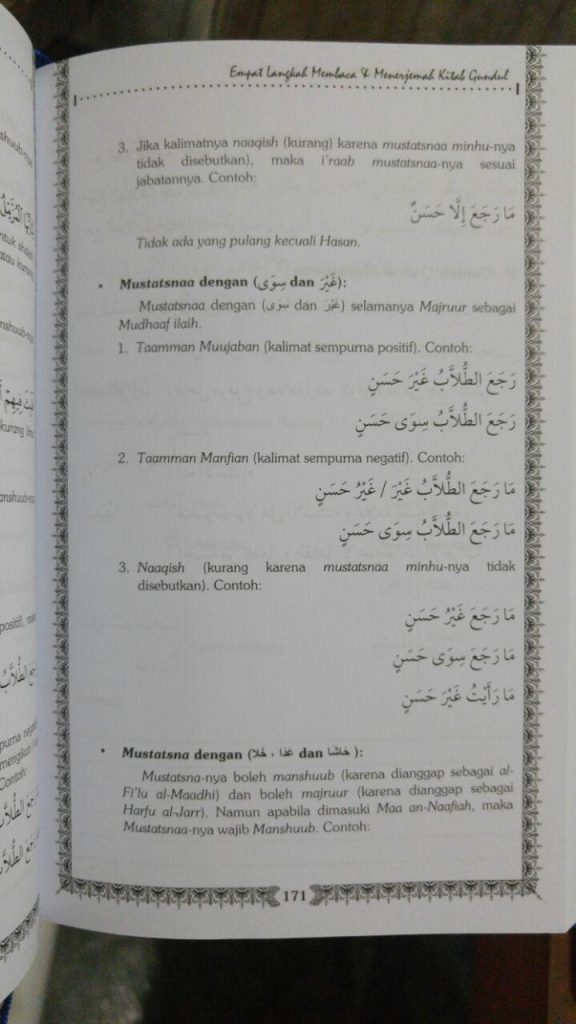 Empat Langkah Membaca & Menerjemah Kitab Gundul
3. Jika kalimatnya naaqish (kurang) karena mustatsnaa minhu-nya
tidak disebutkan), maka i'raab mustatsnaa-nya sesuai
jabatannya. Contoh:
مَا رَجَعَ إِلَّا حَسَنٌ
Tidak ada yang pulang kecuali Hasan.
• Mustatsnaa dengan (غَيْرَ dan سِوَى):
Mustatsnaa dengan (غَيْرَ dan سِوَى) selamanya Majruur sebagai
Mudhaaf ilaih.
1. Taamman Muujaban (kalimat sempurna positif). Contoh:
رَجَعَ الطُّلَّابُ غَيْرَ حَسَنٍ
رَجَعَ الطُّلَّابُ سِوَى حَسَنٍ
2. Taamman Manfian (kalimat sempurna negatif). Contoh:
مَا رَجَعَ الطُّلَّابُ غَيْرَ / غَيْرُ حَسَنٍ
مَا رَجَعَ الطُّلَّابُ سِوَى حَسَنٍ
3. Naaqish (kurang karena mustatsnaa minhu-nya tidak
disebutkan). Contoh:
مَا رَجَعَ غَيْرُ حَسَنٍ
مَا رَجَعَ سِوَى حَسَنٍ
مَا رَأَيْتُ غَيْرَ حَسَنٍ
• Mustatsna dengan (خَلَا ، عَدَا dan حَاشَا):
Mustatsna-nya boleh manshuub (karena dianggap sebagai al-
Fi'lu al-Maadhi) dan boleh majruur (karena dianggap sebagai
Harfu al-Jarr). Namun apabila dimasuki Maa an-Naafiah, maka
Mustatsnaa-nya wajib Manshuub. Contoh:
171